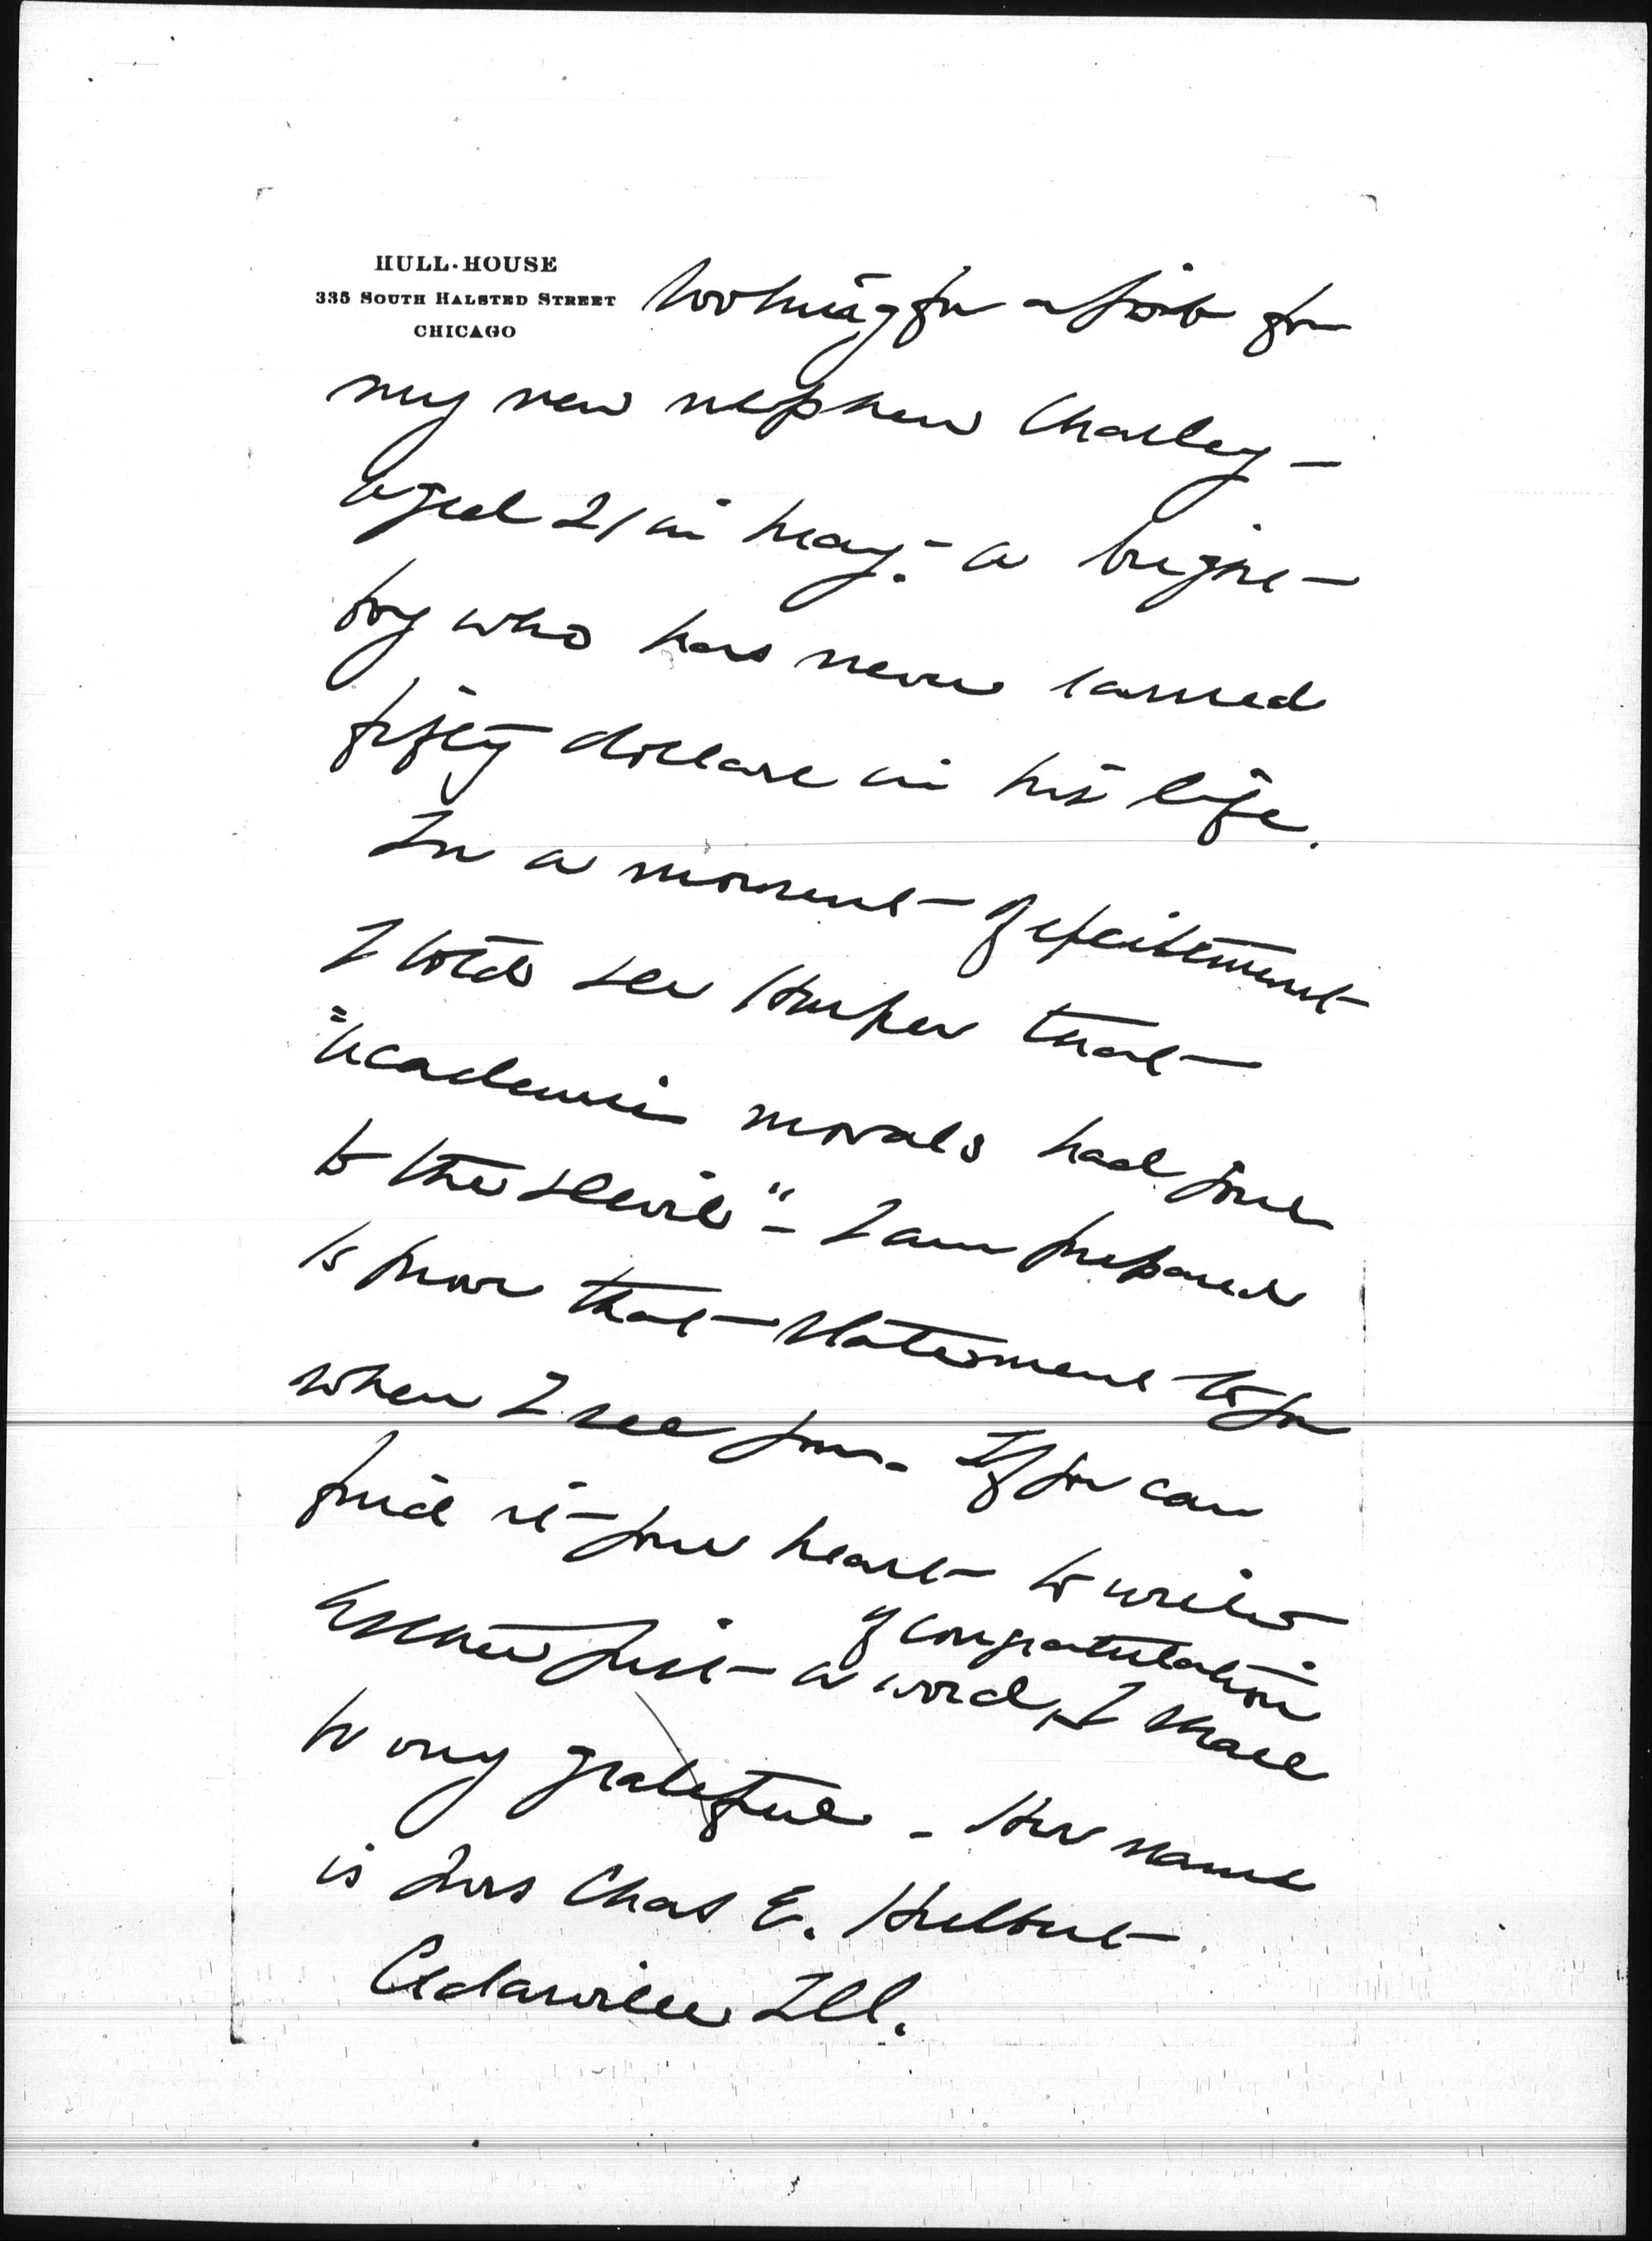 HULL-HOUSE
335 SOUTH HALSTED STREET
CHICAGO
looking for a job for
my new nephew Charley —
aged 21 in May. — a bright
boy who has never earned
fifty dollars in his life.
In a moment of excitement
I told Dr Harper that
"academic morals had gone
to the Devil" — I am prepared
to prove that statement to you
when I see you. If you can
find it your heart to write
Esther just a word, I shall
of congratulation
be very grateful — Her name
is Mrs Chas E. Hulbert
Cedarville Ill.